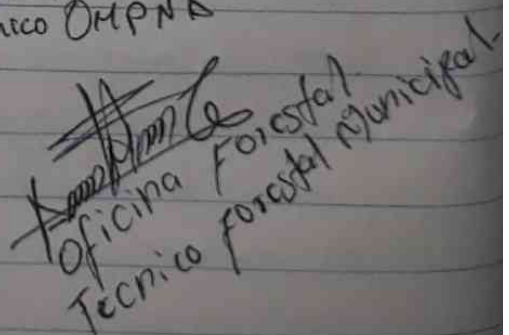 nico OMPNA
Oficina Forestal.
Tecnico Forestal Municipal.